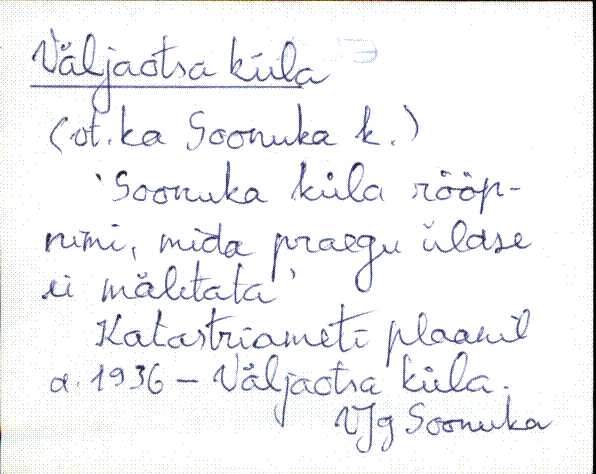 Väljaotsa küla
(vt. ka Soonuka k.)
'Soonuka küla rööp-
nimi, mida praegu üldse
ei mäletata'
Katastriameti plaanil
a. 1936 – Väljaotsa küla.
VJg Soonuka